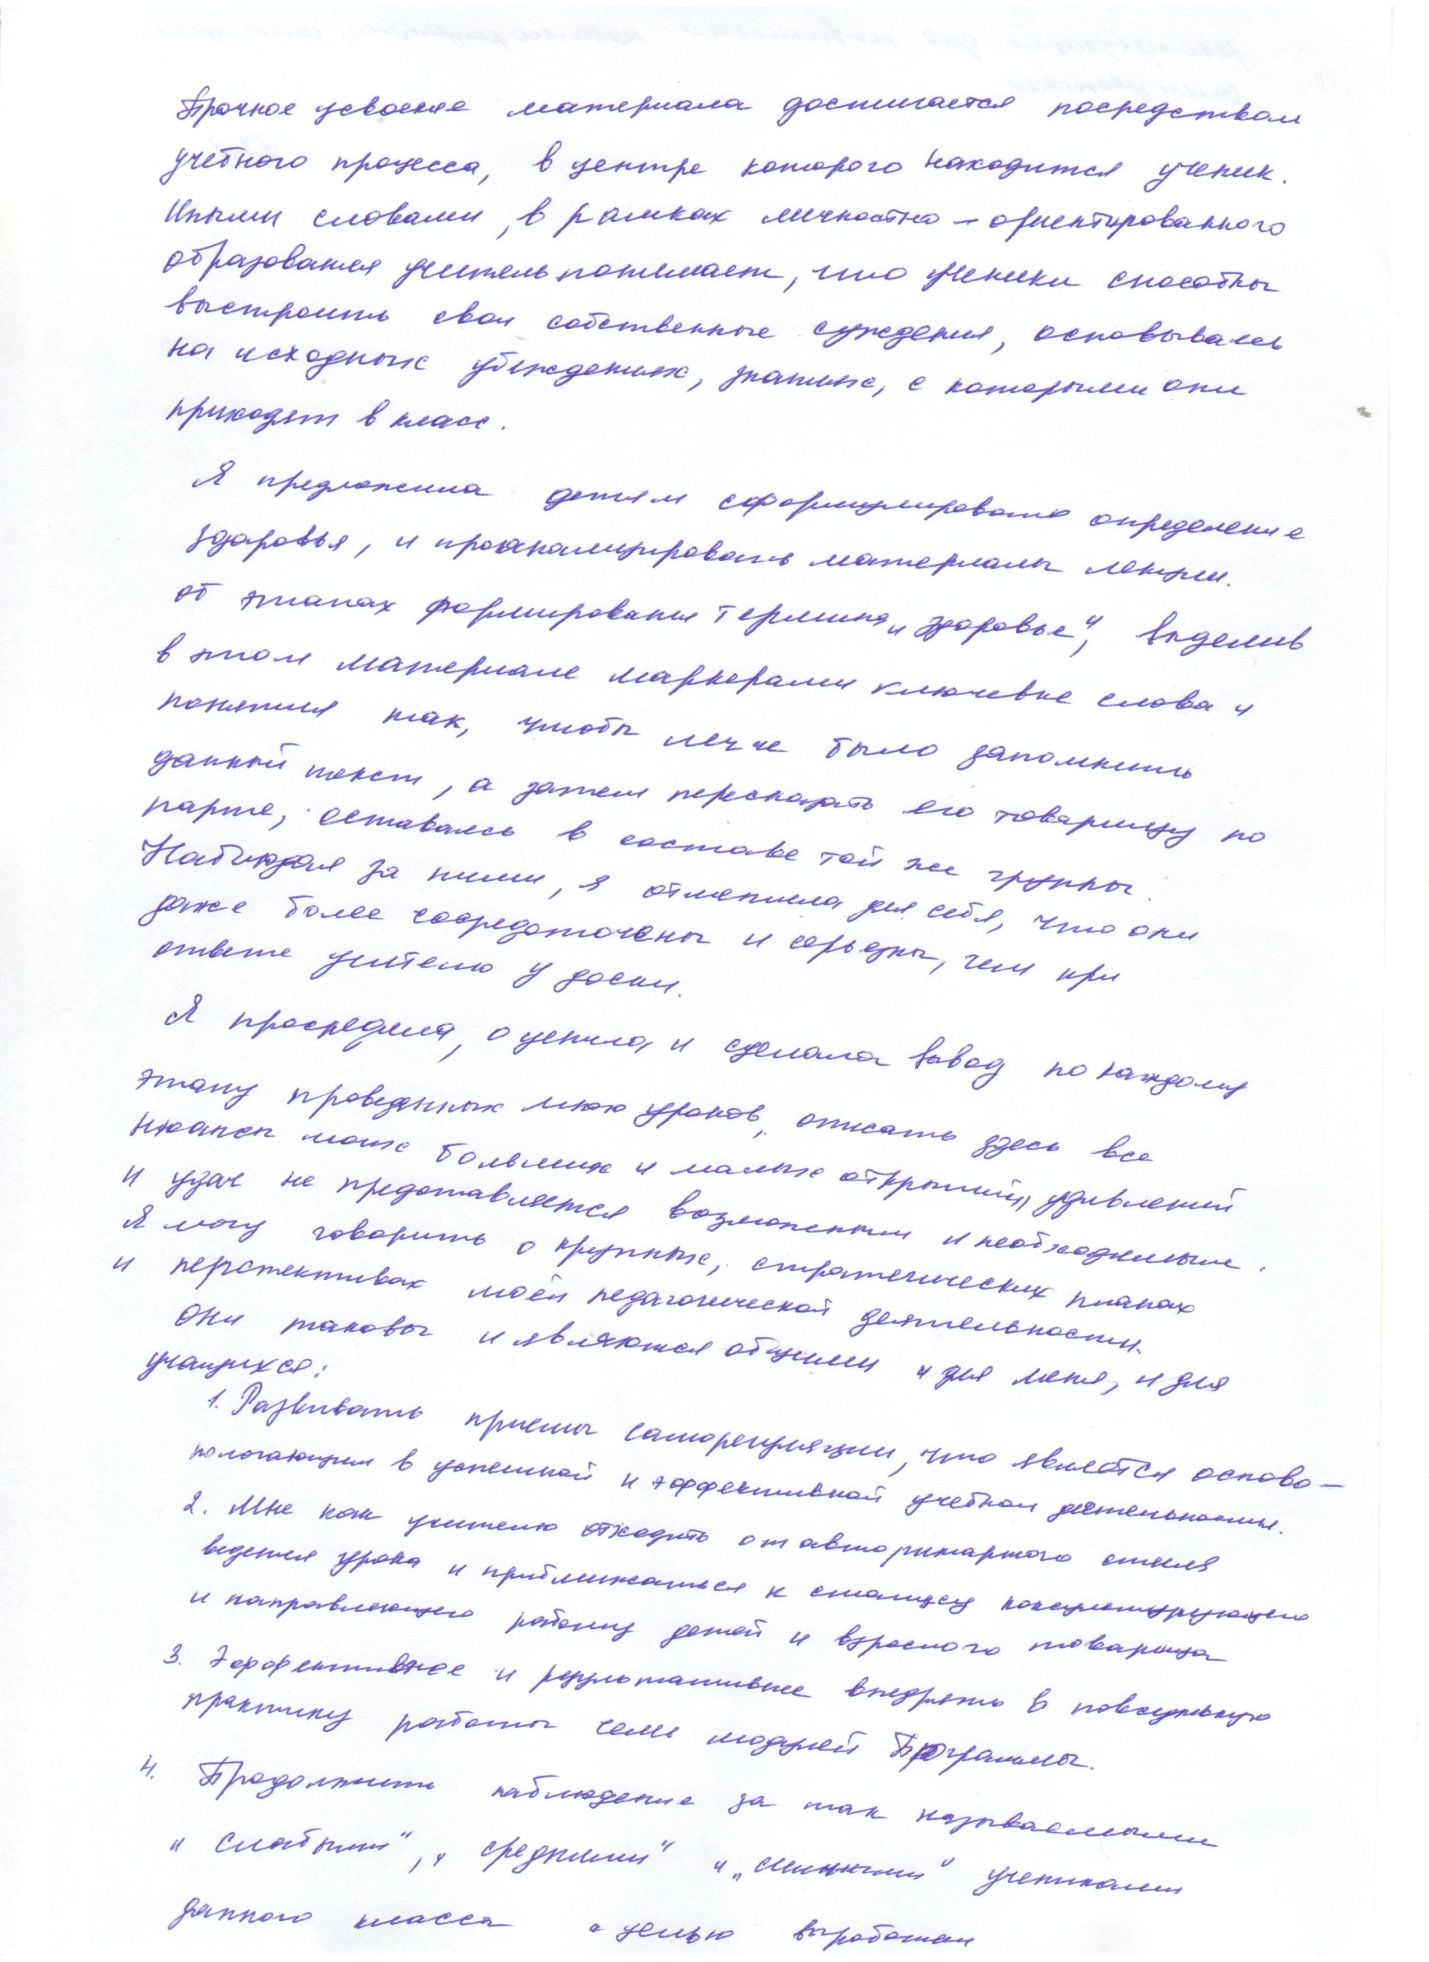 Прочное усвоение материала достигается посредством
учебного процесса, в центре которого находится ученик.
Иными словами, в рамках личностно-ориентированного
образования учитель понимает, что ученики способны
выстроить свои собственные суждения, основываясь
на исходных убеждениях, знаниях, с которыми они
приходят в класс.
Я предложила детям сформулировать определение
здоровья, и проанализировать материалы лекции.
об этапах формирования термина „здоровье", выделив
в этом материале маркерами ключевые слова и
понятия так, чтобы легче было запомнить
данный текст, а затем пересказать его товарищу по
парте, оставаясь в составе той же группы.
Наблюдая за ними, я отметила для себя, что они
даже более сосредоточены и серьезны, чем при
ответе учителю у доски.
Я проследила, оценила и сделала вывод по каждому
этапу проведенных мною уроков, описать здесь все
нюансы моих больших и малых открытий, удивлений
и удач не представляется возможным и необходимым.
Я могу говорить о крупных, стратегических планах
и перспективах моей педагогической деятельности.
Они таковы и являются общими и для меня, и для
учащихся:
1. Развивать приемы саморегуляции, что является осново-
полагающим в успешной и эффективной учебной деятельности.
2. Мне как учителю отходить от авторитарного стиля
ведения урока и приближаться к станцу консультирующего
и направляющего работу детей и взрослого товарища
3. Эффективное и результативнее внедрять в повседневную
практику работы семь модулей Программы.
4. Продолжить наблюдение за так называемыми
„слабыми", „средними" и „сильными" учениками
данного класса с целью выработки